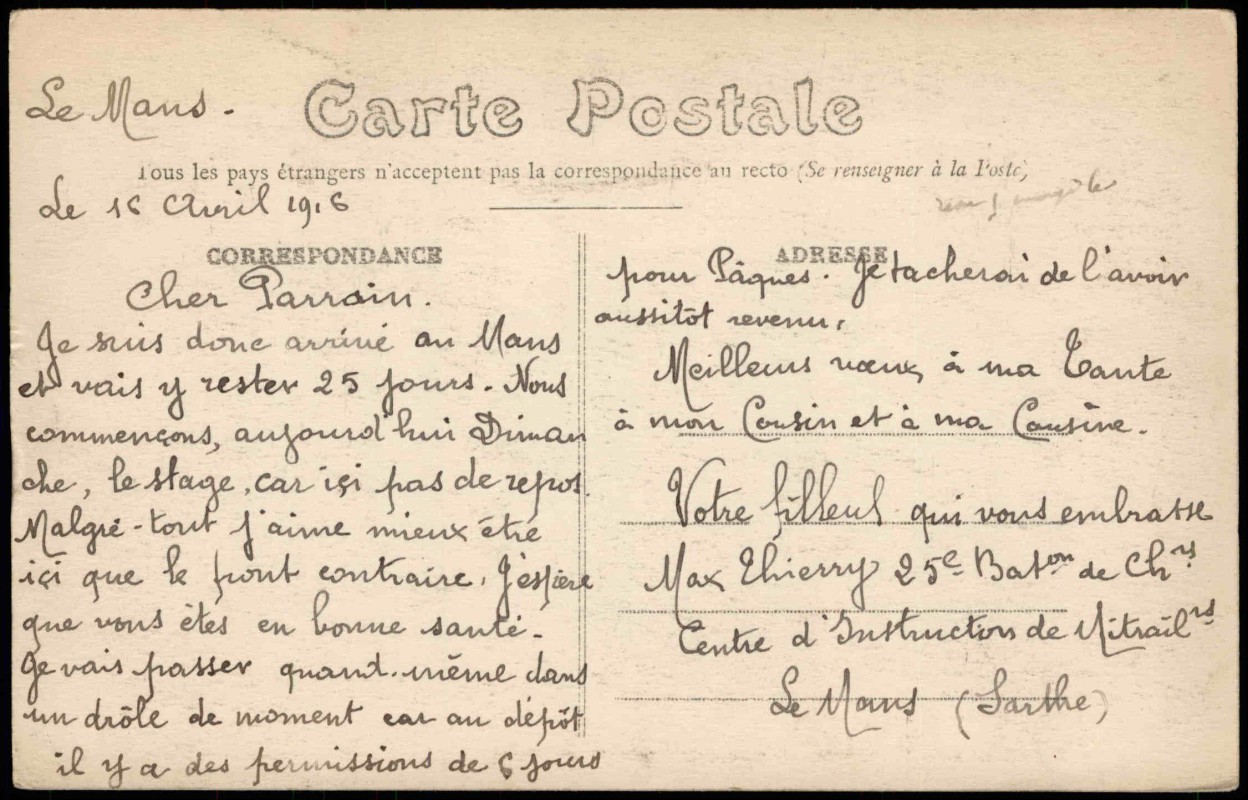 Le Mans.
Carte Postale
Tous les pays étrangers n'acceptent pas la correspondance au recto (Se renseigner à la Poste)
Le 16 Avril 1916
CORRESPONDANCE
Cher Parrain.
Je suis donc arrivé au Mans
et vais y rester 25 jours. Nous
commençons, aujourd'hui Diman
che, le stage, car içi pas de repos.
Malgré-tout j'aime mieux être
içi que le front contraire. J'espère
que vous êtes en bonne santé.
Je vais passer quand-même dans
un drôle de moment car au dépôt
il y a des permissions de 6 jours
ADRESSE
pour Pâques. Je tacherai de l'avoir
aussitôt revenu.
Meilleurs vœux à ma Tante
à mon Cousin et à ma Cousine.
Votre filleul qui vous embrasse
Max Thierry 25e Baton de Chrs
Centre d'Instruction de Mitrailrs
Le Mans (Sarthe)